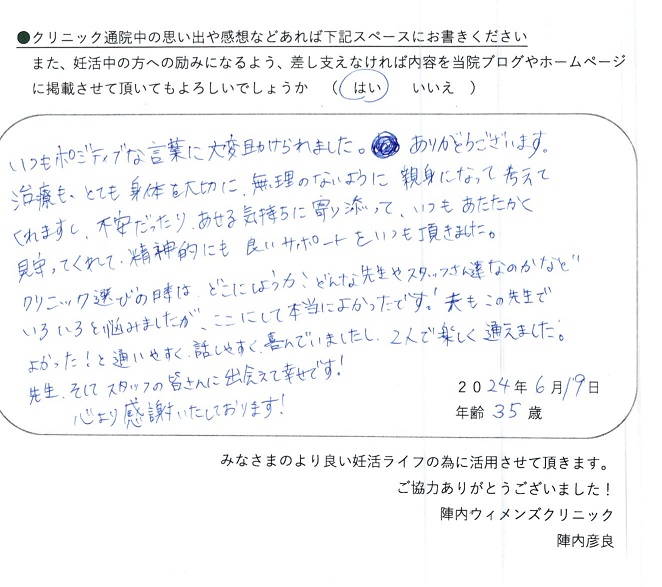 ●クリニック通院中の思い出や感想などあれば下記スペースにお書きください
また、妊活中の方への励みになるよう、差し支えなければ内容を当院ブログやホームページ
に掲載させて頂いてもよろしいでしょうか （ はい いいえ ）
いつもポジティブな言葉に大変助けられました。 ありがとうございます。
治療も、とても身体を大切に、無理のないように 親身になって考えて
くれますし、不安だったり、あせる気持ちに寄り添って、いつもあたたかく
見守ってくれて、精神的にも良いサポートをいつも頂きました。
クリニック選びの時は、どこにしようか、どんな先生やスタッフさん達なのかなど
いろいろと悩みましたが、ここにして本当によかったです！夫もこの先生で
よかった！と通いやすく、話しやすく、喜んでいましたし、2人で楽しく通えました。
先生、そしてスタッフの皆さんに出会えて幸せです！
心より感謝いたしております！
2024年6月19日
年齢 35歳
みなさまのより良い妊活ライフの為に活用させて頂きます。
ご協力ありがとうございました！
陣内ウィメンズクリニック
陣内彦良